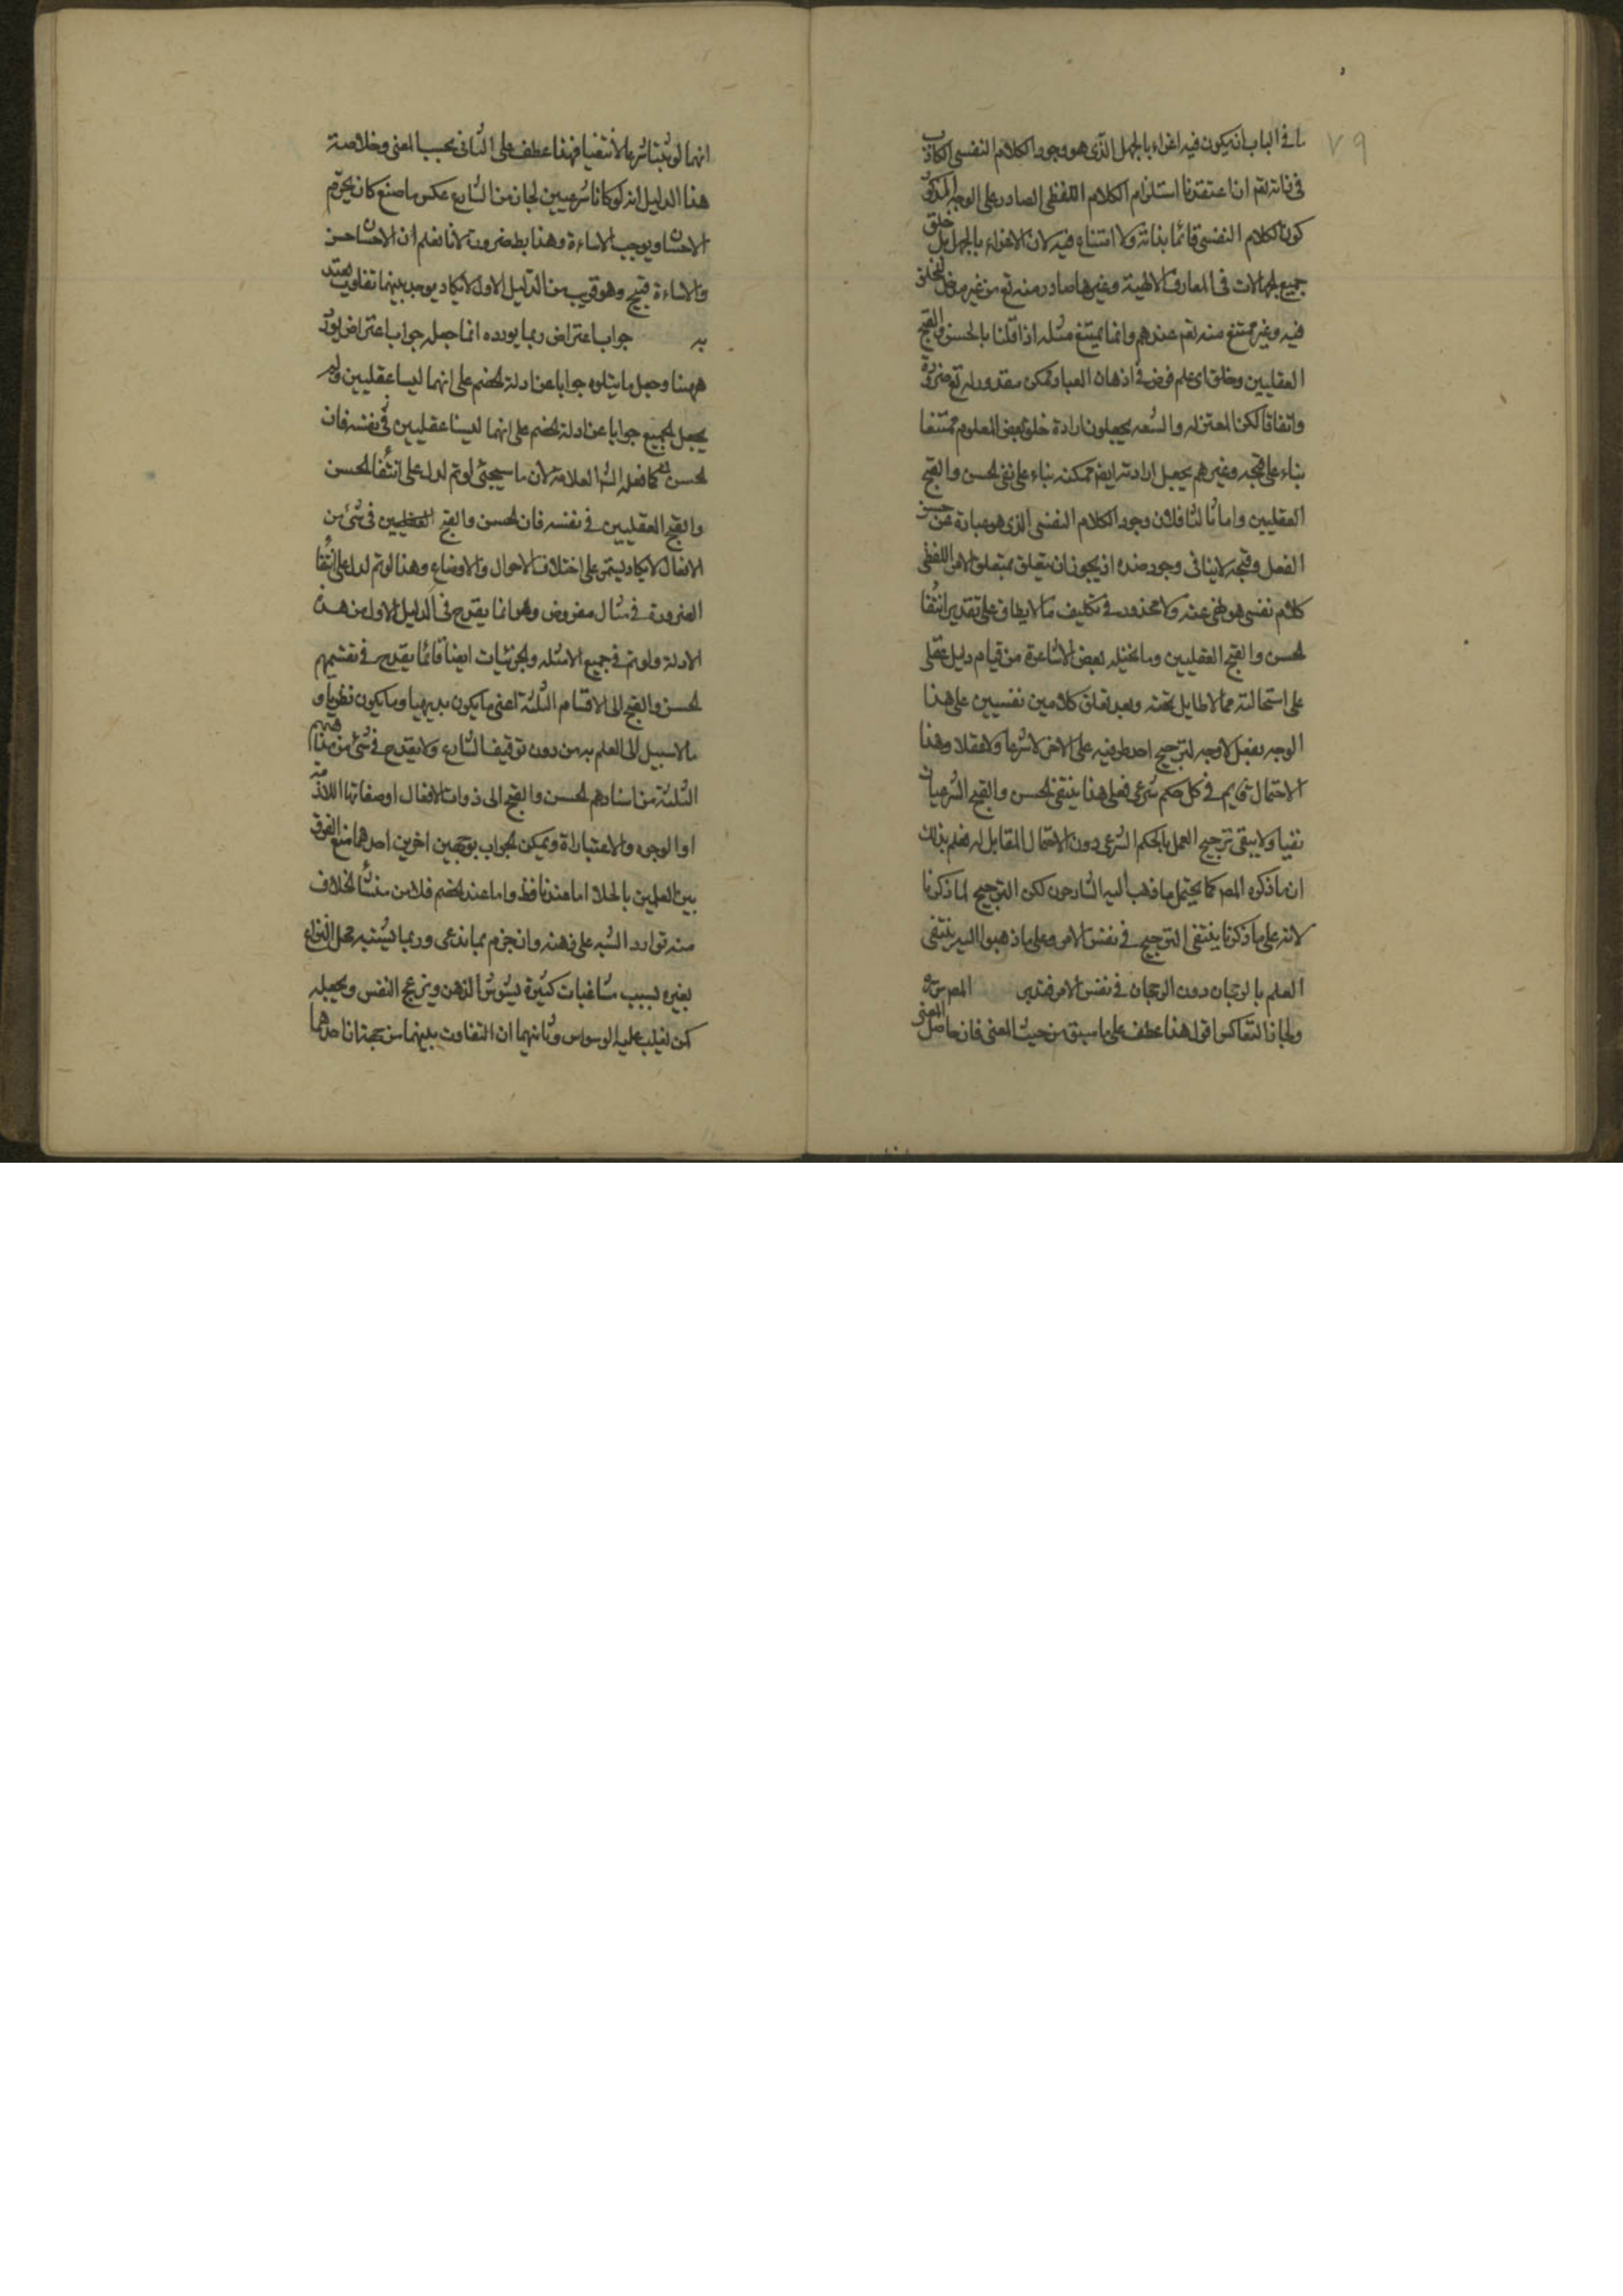 ٧٩
ما في الباب انه يكون فيه اغراء بالجهل الذي هو وجود الكلام النفسي الكاذب
في ذاته تعم ان اعتقدنا استلزام الكلام اللفظي الصادر على الوجه المذكور
كون الكلام النفسي قائما بذاته ولا امتناع فيه لان الاغراء بالجهل بل خلق
جميع الجهالات في المعارف الالهية وغيرها صادر منه تع من غير مدخل للخلق
فيه وغير ممتنع منه تعم عندهم وانما يمتنع مثله اذا قلنا بالحسن والقبح
العقليين وخلق اي علم فرض في اذهان العباد ممكن مقدور له تع ضرورة
واتفاقا لكن المعتزله والشعه يجعلون ارادة خلق بعض العلوم ممتنعا
بناء على قبحه وغيرهم يجعل ارادته ايضا ممكنه بناء على نفي الحسن والقبح
العقليين واما ثالثا فلان وجود الكلام النفسي الذي هو عبارة عن حسن
الفعل وقبحه لا ينافي وجود ضده اذ يجوز ان يتعلق بمتعلق الامر اللفظي
كلام نفسي هو نهي عنه ولا محذور في تكليف ما لا يطاق على تقدير انتفا
الحسن والقبح العقليين وما تخيله بعض الاشاعرة من قيام دليل عقلي
على استحالته مما لا طايل تحته وبعد تعلق كلامين نفسيين على هذا
الوجه بفعل لا وجه لترجيح احد طرفيه على الاخر لا شرعا ولا عقلا وهذا
الاحتمال قايم في كل حكم شرعي فعلى هذا ينتفي الحسن والقبح الشرعيان
نفيا ولا يبقى ترجيح العمل بالحكم الشرعي دون الاحتمال المقابل له فعلم بذلك
ان ما ذكره المصر كما يحتمل ما ذهب اليه الشارحون لكن الترجيح لما ذكرنا
لانه على ما ذكرنا ينتفي الترجيح في نفس الامر وعلى ما ذهبوا اليه ينتفي
العلم بالرجحان دون الرجحان في نفس الامر فتدبر المصر
ولجاز التعاكس اقول هذا عطف على ما سبق من حيث المعنى فان حاصل المعنى
انهما لو ثبتا شرعا لانتفيا فهذا عطف على الثاني بحسب المعنى وخلاصة
هذا الدليل انه لو كانا شرعيين لجاز من الشارع عكس ما صنع كان يحرم
الاحسان ويوجب الاساءة وهذا بط ضرورة لانا نعلم ان الاحسان حسن
والاساءة قبيح وهو قريب من الدليل الاول لا يكاد يوجد بينهما تفاوت يعتد
به جواب اعتراض ربما يورده انما جعله جواب اعتراض يورد
ههنا وجعل ما يتلوه جوابا عن ادلة الخصم على انهما ليسا عقليين ولم
يجعل الجميع جوابا عن ادلة الخصم على انهما ليسا عقليين في نفسه فان
الحسن كما فعله الش العلامة لان ما سيجئ لو تم لدل على انتفا الحسن
والقبح العقليين في نفسه فان الحسن والقبح العقليين في شئ من
الافعال لا يكاد يستمر على اختلاف الاحوال والاوضاع وهذا لو تم لدل على انتفا
الضرورة في مثال مفروض وهو انما يقدح في الدليل الاول من هذه
الادلة ولو تم في جميع الامثله والجزئيات ايضا فانما يقدح في تقسيمهم
الحسن والقبح الى الاقسام الثلثة اعني ما يكون بديهيا وما يكون نظريا و
ما لا سبيل الى العلم به من دون توقيف الشارع ولا يقدح في شئ من مذاهبهم
الثلثة من اسنادهم الحسن والقبح الى ذوات الافعال او صفاتها اللازمة
او الوجوه والاعتبارات ويمكن الجواب بوجهين اخرين احدهما منع الفرق
بين العلمين بالجلا اما عندنا فظ واما عند الخصم فلا من منشأ الخلاف
منه توارد الشبه على ذهنه وان جزم بما ندعي وربما يشتبه محل النزاع
بغيره بسبب مشاغبات كثيرة يشوش الذهن ويزعج النفس ويجعله
كمن يغلب عليه الوسواس وثانيهما ان التفاوت بينهما من جهة ان احدهما